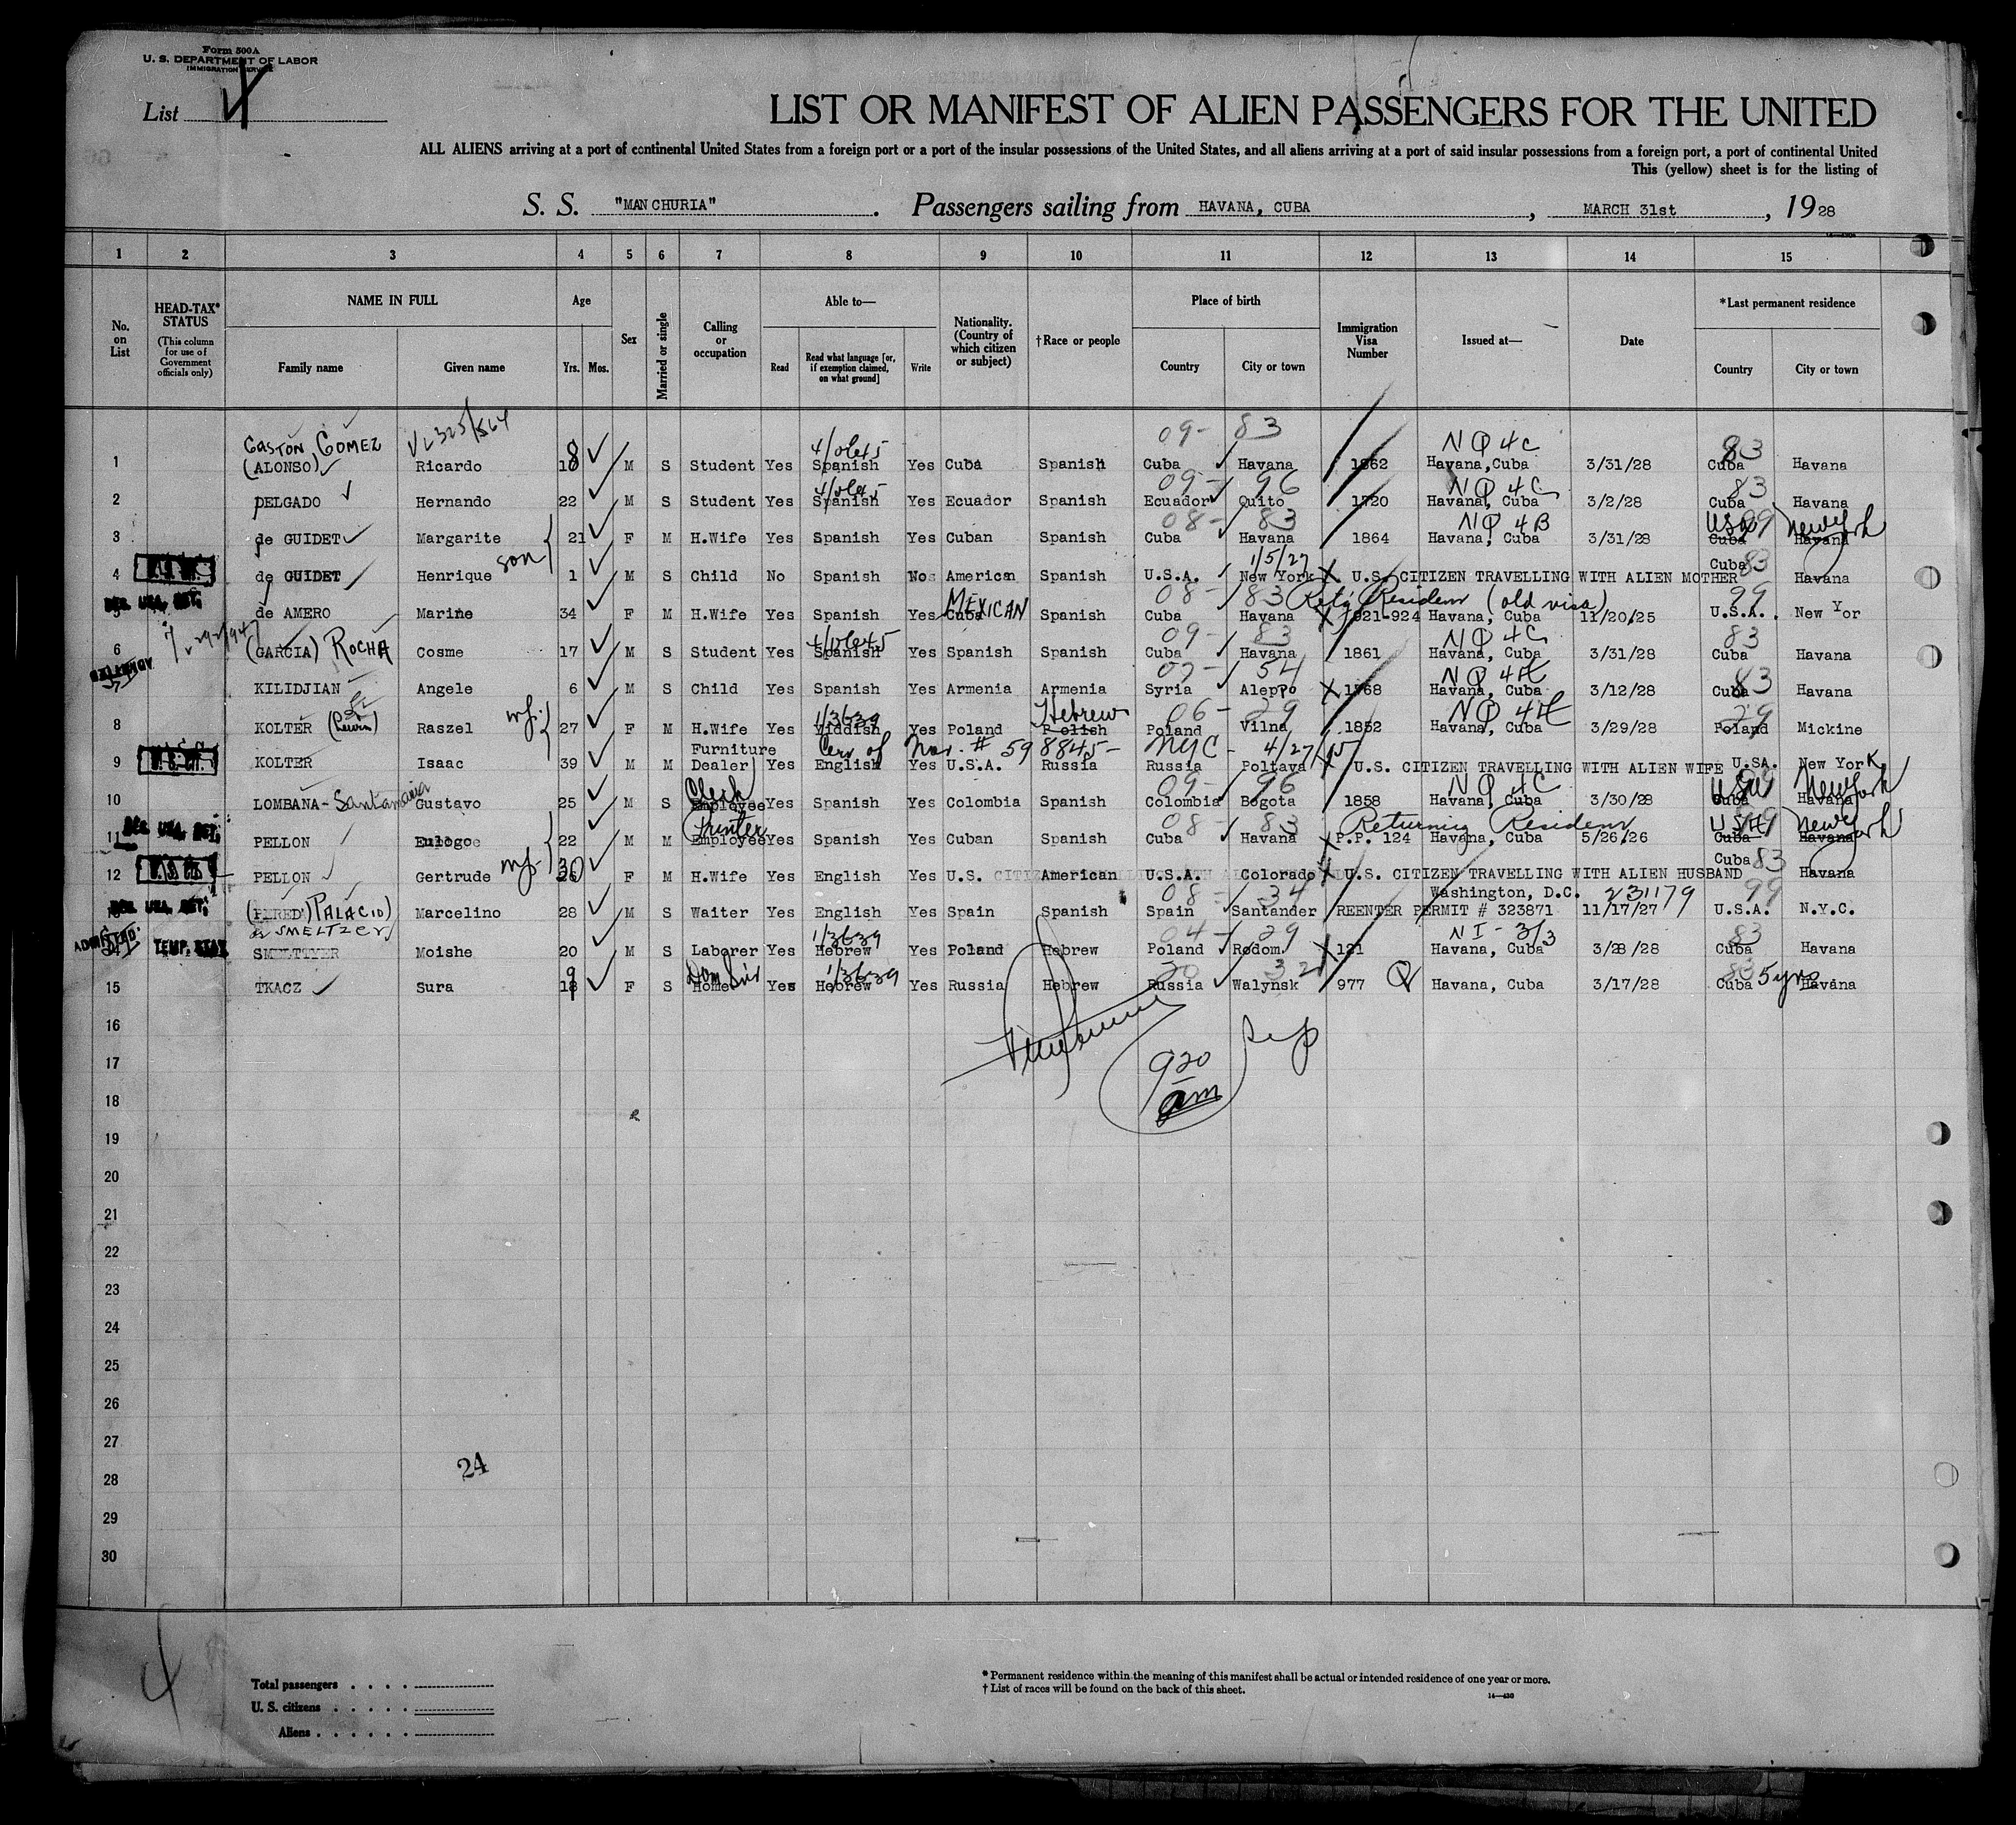 Form 500A
U. S. DEPARTMENT OF LABOR
IMMIGRATION SERVICE
List 4
LIST OR MANIFEST OF ALIEN PASSENGERS FOR THE UNITED
ALL ALIENS arriving at a port of continental United States from a foreign port or a port of the insular possessions of the United States, and all aliens arriving at a port of said insular possessions from a foreign port, a port of continental United
This (yellow) sheet is for the listing of
S. S. "MANCHURIA". Passengers sailing from HAVANA, CUBA, MARCH 31st, 1928
1 2 3 4 5 6 7 8 9 10 11 12 13 14 15
No. on List
HEAD-TAX* STATUS (This column for use of Government officials only)
NAME IN FULL
Family name Given name
Age
Yrs. Mos.
Sex
Married or single
Calling or occupation
Able to—
Read Read what language [or, if exemption claimed, on what ground] Write
Nationality. (Country of which citizen or subject)
†Race or people
Place of birth
Country City or town
Immigration Visa Number
Issued at—
Date
*Last permanent residence
Country City or town
GASTON, GOMEZ 09- 83 NQ 4C 83
1 (ALONSO) Ricardo 18 M S Student Yes Spanish Yes Cuba Spanish Cuba Havana 1862 Havana, Cuba 3/31/28 Cuba Havana
09- 96 NQ 4C 83
2 DELGADO Hernando 22 M S Student Yes Spanish Yes Ecuador Spanish Ecuador Quito 1720 Havana, Cuba 3/2/28 Cuba Havana
08- 83 NQ 4B USA 99 New York
3 de GUIDET Margarite 21 F M H.Wife Yes Spanish Yes Cuban Spanish Cuba Havana 1864 Havana, Cuba 3/31/28 Cuba Havana
son 1/5/27 Cuba 83
4 de GUIDET Henrique 1 M S Child No Spanish No American Spanish U.S.A. New York U.S. CITIZEN TRAVELLING WITH ALIEN MOTHER Havana
MEXICAN 08- 83 Retg Resident (old visa) 99
5 de AMERO Marine 34 F M H.Wife Yes Spanish Yes Cuba Spanish Cuba Havana 1921-924 Havana, Cuba 11/20/25 U.S.A. New Yor
09- 83 NQ 4C 83
6 (GARCIA) ROCHA Cosme 17 M S Student Yes Spanish Yes Spanish Spanish Cuba Havana 1861 Havana, Cuba 3/31/28 Cuba Havana
07- 54 NQ 4H 83
7 KILIDJIAN Angele 6 M S Child Yes Spanish Yes Armenia Armenia Syria Aleppo 1768 Havana, Cuba 3/12/28 Cuba Havana
wf. Hebrew 06- 29 NQ 4H 29
8 KOLTER (Lewin) Raszel 27 F M H.Wife Yes Yiddish Yes Poland Polish Poland Vilna 1852 Havana, Cuba 3/29/28 Poland Mickine
U.S. CIT. Furniture Cer of Nat. # 598845- NYC- 4/27/15
9 KOLTER Isaac 39 M M Dealer Yes English Yes U.S.A. Russia Russia Poltava U.S. CITIZEN TRAVELLING WITH ALIEN WIFE U.S.A. New York
Clerk 09- 96 NQ 4C USA New York
10 LOMBANA-Santamaria Gustavo 25 M S Employee Yes Spanish Yes Colombia Spanish Colombia Bogota 1858 Havana, Cuba 3/30/28 Cuba Havana
Printer 08- 83 Returning Resident USA 99 New York
11 PELLON Eulogo 22 M M Employee Yes Spanish Yes Cuban Spanish Cuba Havana P.P. 124 Havana, Cuba 5/26/26 Cuba Havana
wf- Cuba 83
12 PELLON Gertrude 26 F M H.Wife Yes English Yes U.S. American U.S.A. Colorado U.S. CITIZEN TRAVELLING WITH ALIEN HUSBAND Havana
08- 34 Washington, D.C. 231179 99
(PERED) PALACIO Marcelino 28 M S Waiter Yes English Yes Spain Spanish Spain Santander REENTER PERMIT # 323871 11/17/27 U.S.A. N.Y.C.
ADMITTED: TEMP. STAY or SMELTZER 04- 29 NI-3/3 83
SMELTTYER Moishe 20 M S Laborer Yes Hebrew Yes Poland Hebrew Poland Rodom 121 Havana, Cuba 3/28/28 Cuba Havana
83 5 yrs
15 TKACZ Sura 19 F S Home Yes Hebrew Yes Russia Hebrew Russia Walynsk 977 Q Havana, Cuba 3/17/28 Cuba Havana
16
17
920 am
18
19
20
21
22
23
24
25
26
27
28
24
29
30
4
Total passengers
U. S. citizens
Aliens
*Permanent residence within the meaning of this manifest shall be actual or intended residence of one year or more.
†List of races will be found on the back of this sheet.
14—430